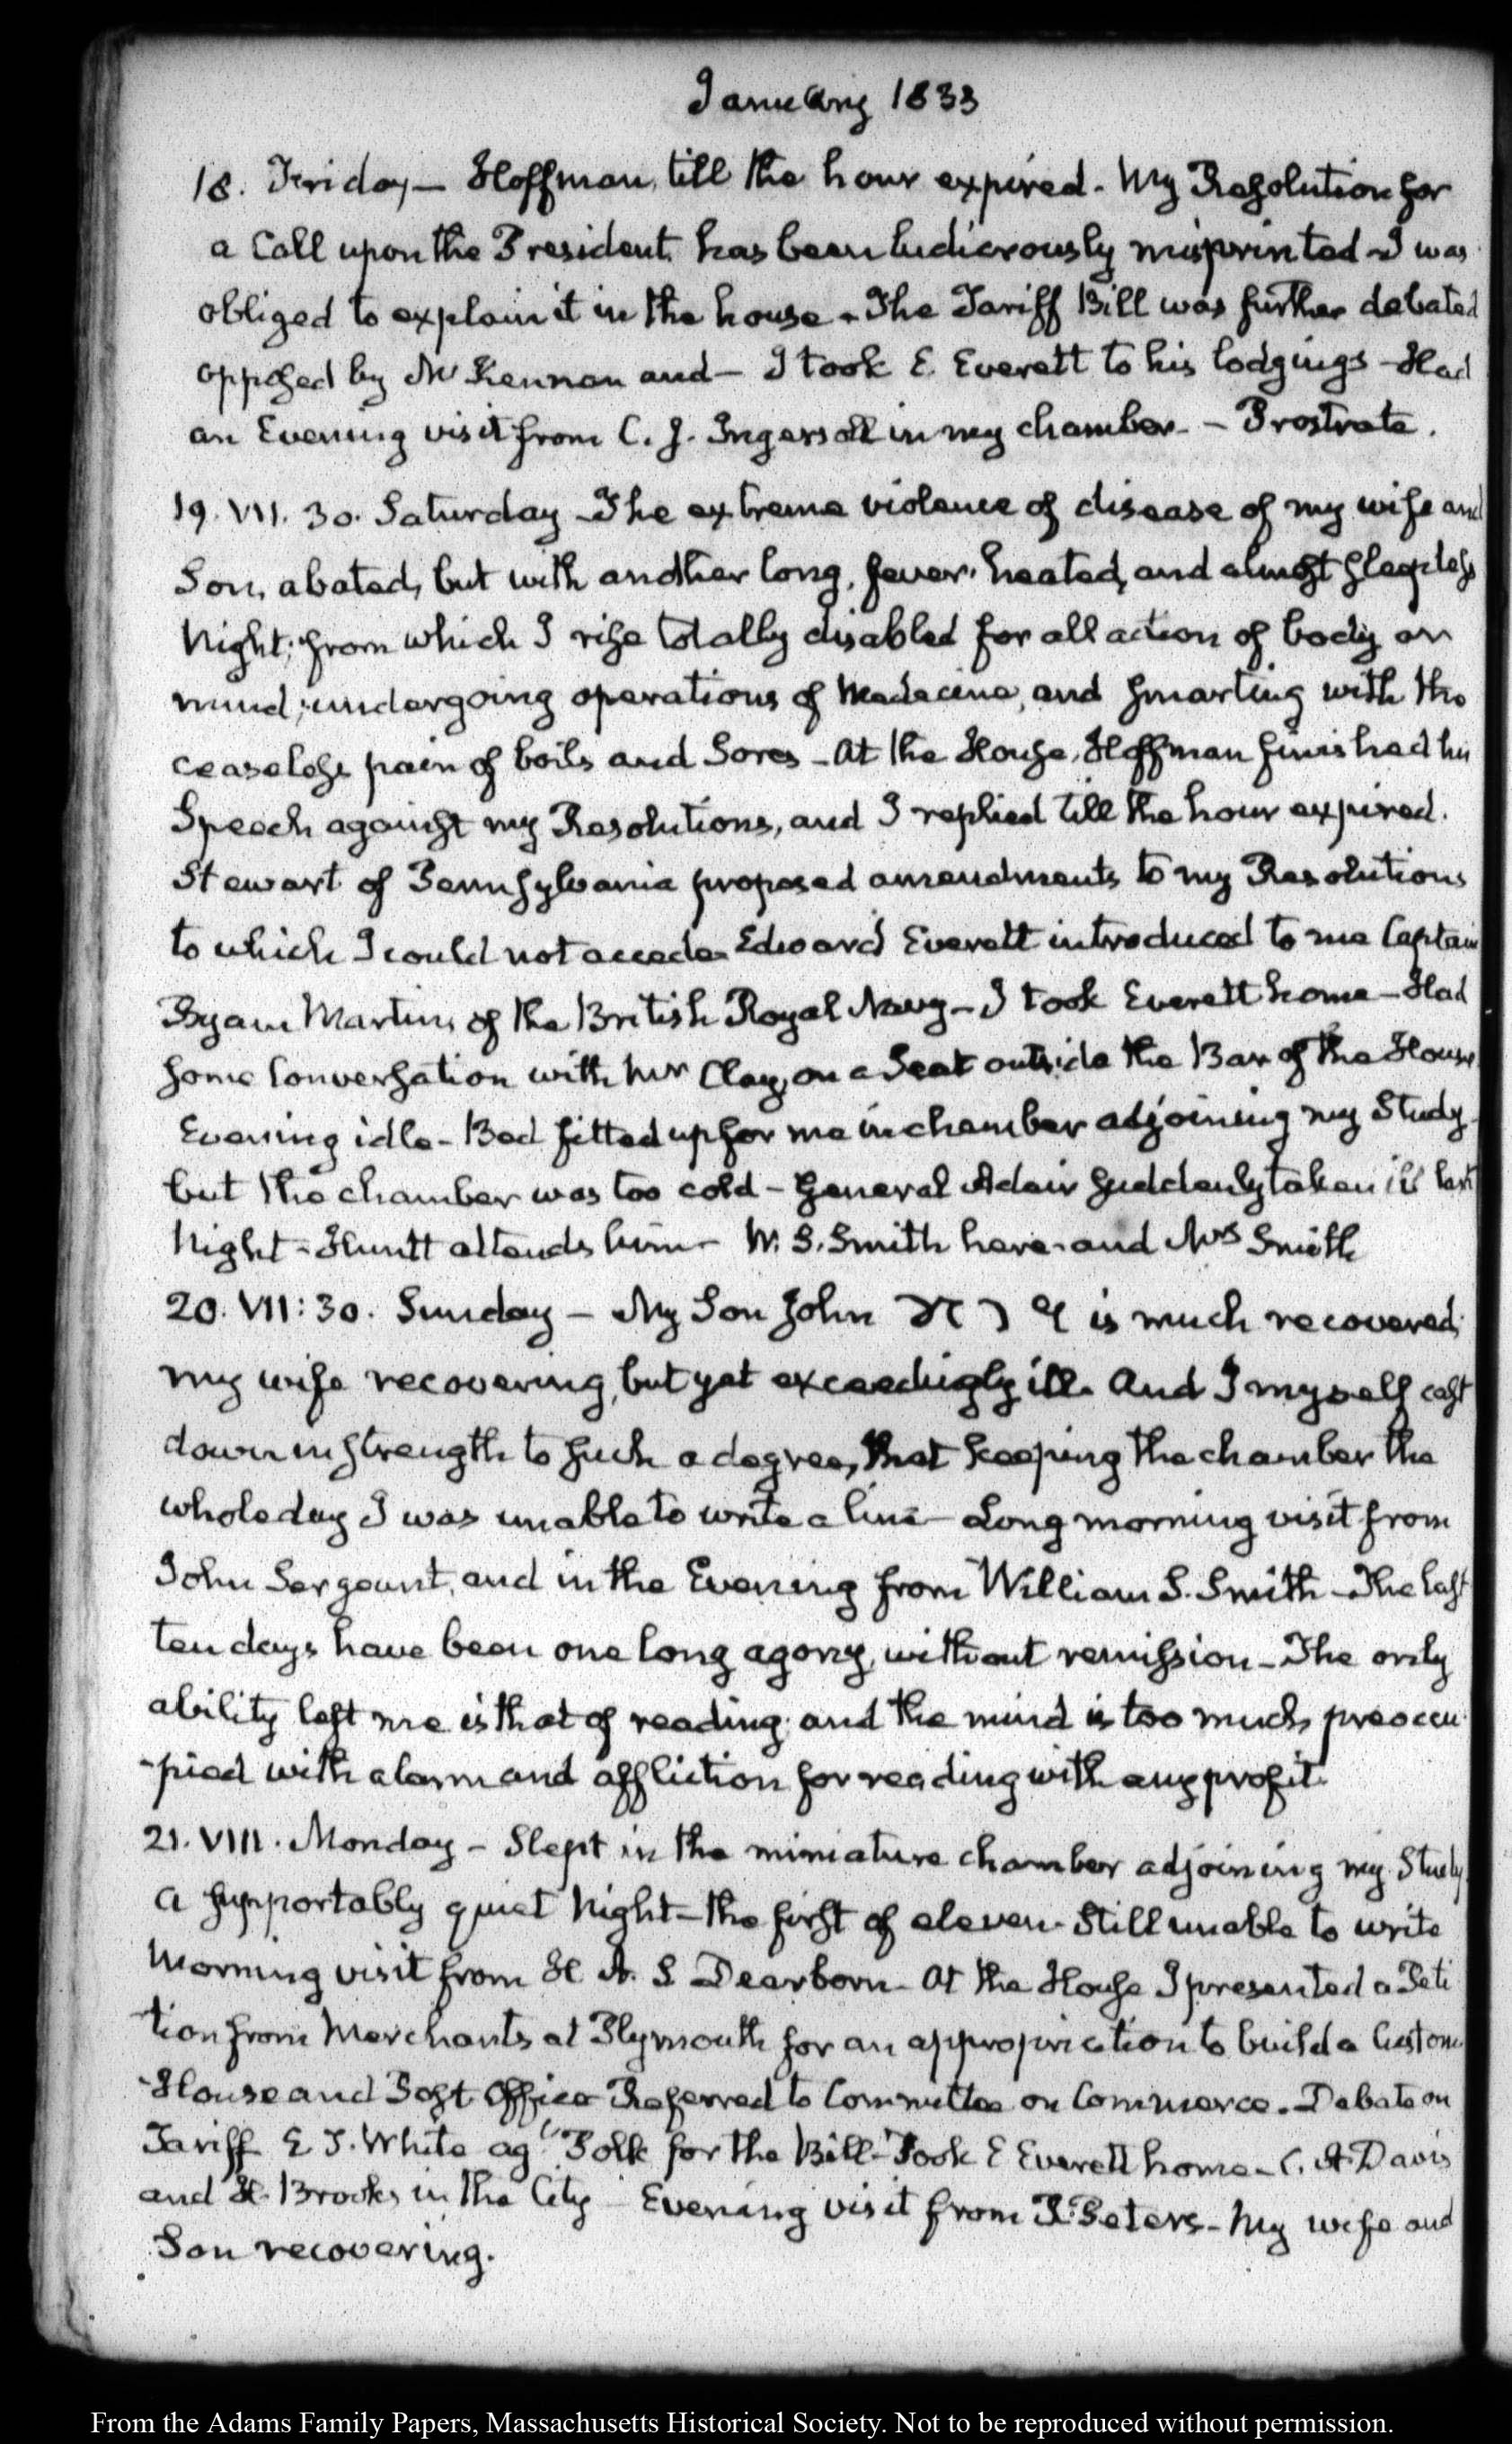 January 1833
18. Friday — Hoffman, till the hour expired - My Resolution for
a Call upon the President has been ludicrously misprinted - I was
obliged to explain it in the house - The Tariff Bill was further debated
opposed by McKennan and — I took E. Everett to his lodgings - Had
an Evening visit from C. J. Ingersoll in my chamber - Prostrate.
19. VII. 30. Saturday - The extreme violence of disease of my wife and
Son, abated, but with another long, fever-heated, and almost sleepless
Night; from which I rise totally disabled for all action of body or
mind; undergoing operations of Medicine, and smarting with the
ceaseless pain of boils and Sores - At the House, Hoffman finished his
Speech against my Resolutions, and I replied till the hour expired.
Stewart of Pennsylvania proposed amendments to my Resolutions
to which I could not accede - Edward Everett introduced to me Captain
Byam Martin, of the British Royal Navy - I took Everett home - Had
some Conversation with Mr Clay, on a Seat outside the Bar of the House
Evening idle - Bed fitted up for me in chamber adjoining my Study
but the chamber was too cold - General Adair suddenly taken ill last
Night - Huntt attends him - W. S. Smith here - and Mrs Smith
20. VII: 30. Sunday — My Son John is much recovered;
my wife recovering, but yet exceedingly ill. And I myself cast
down in strength to such a degree, that keeping the chamber the
whole day I was unable to write a line - Long morning visit from
John Sergeant, and in the Evening from William S. Smith - The last
ten days have been one long agony, without remission - The only
ability left me is that of reading; and the mind is too much preoccu-
-pied with alarm and affliction for reading with any profit.
21. VIII. Monday - Slept in the miniature chamber adjoining my Study
A supportably quiet Night - the first of eleven. Still unable to write
Morning visit from H A. S Dearborn - At the House I presented a Peti
tion from Merchants at Plymouth for an appropriation to build a Custom
-House and Post Office Referred to Committee on Commerce. Debate on
Tariff E D. White agt Polk for the Bill - Took E Everett home - C. A. Davis
and H. Brooks in the City - Evening visit from R. Peters - My wife and
Son recovering.
From the Adams Family Papers, Massachusetts Historical Society. Not to be reproduced without permission.